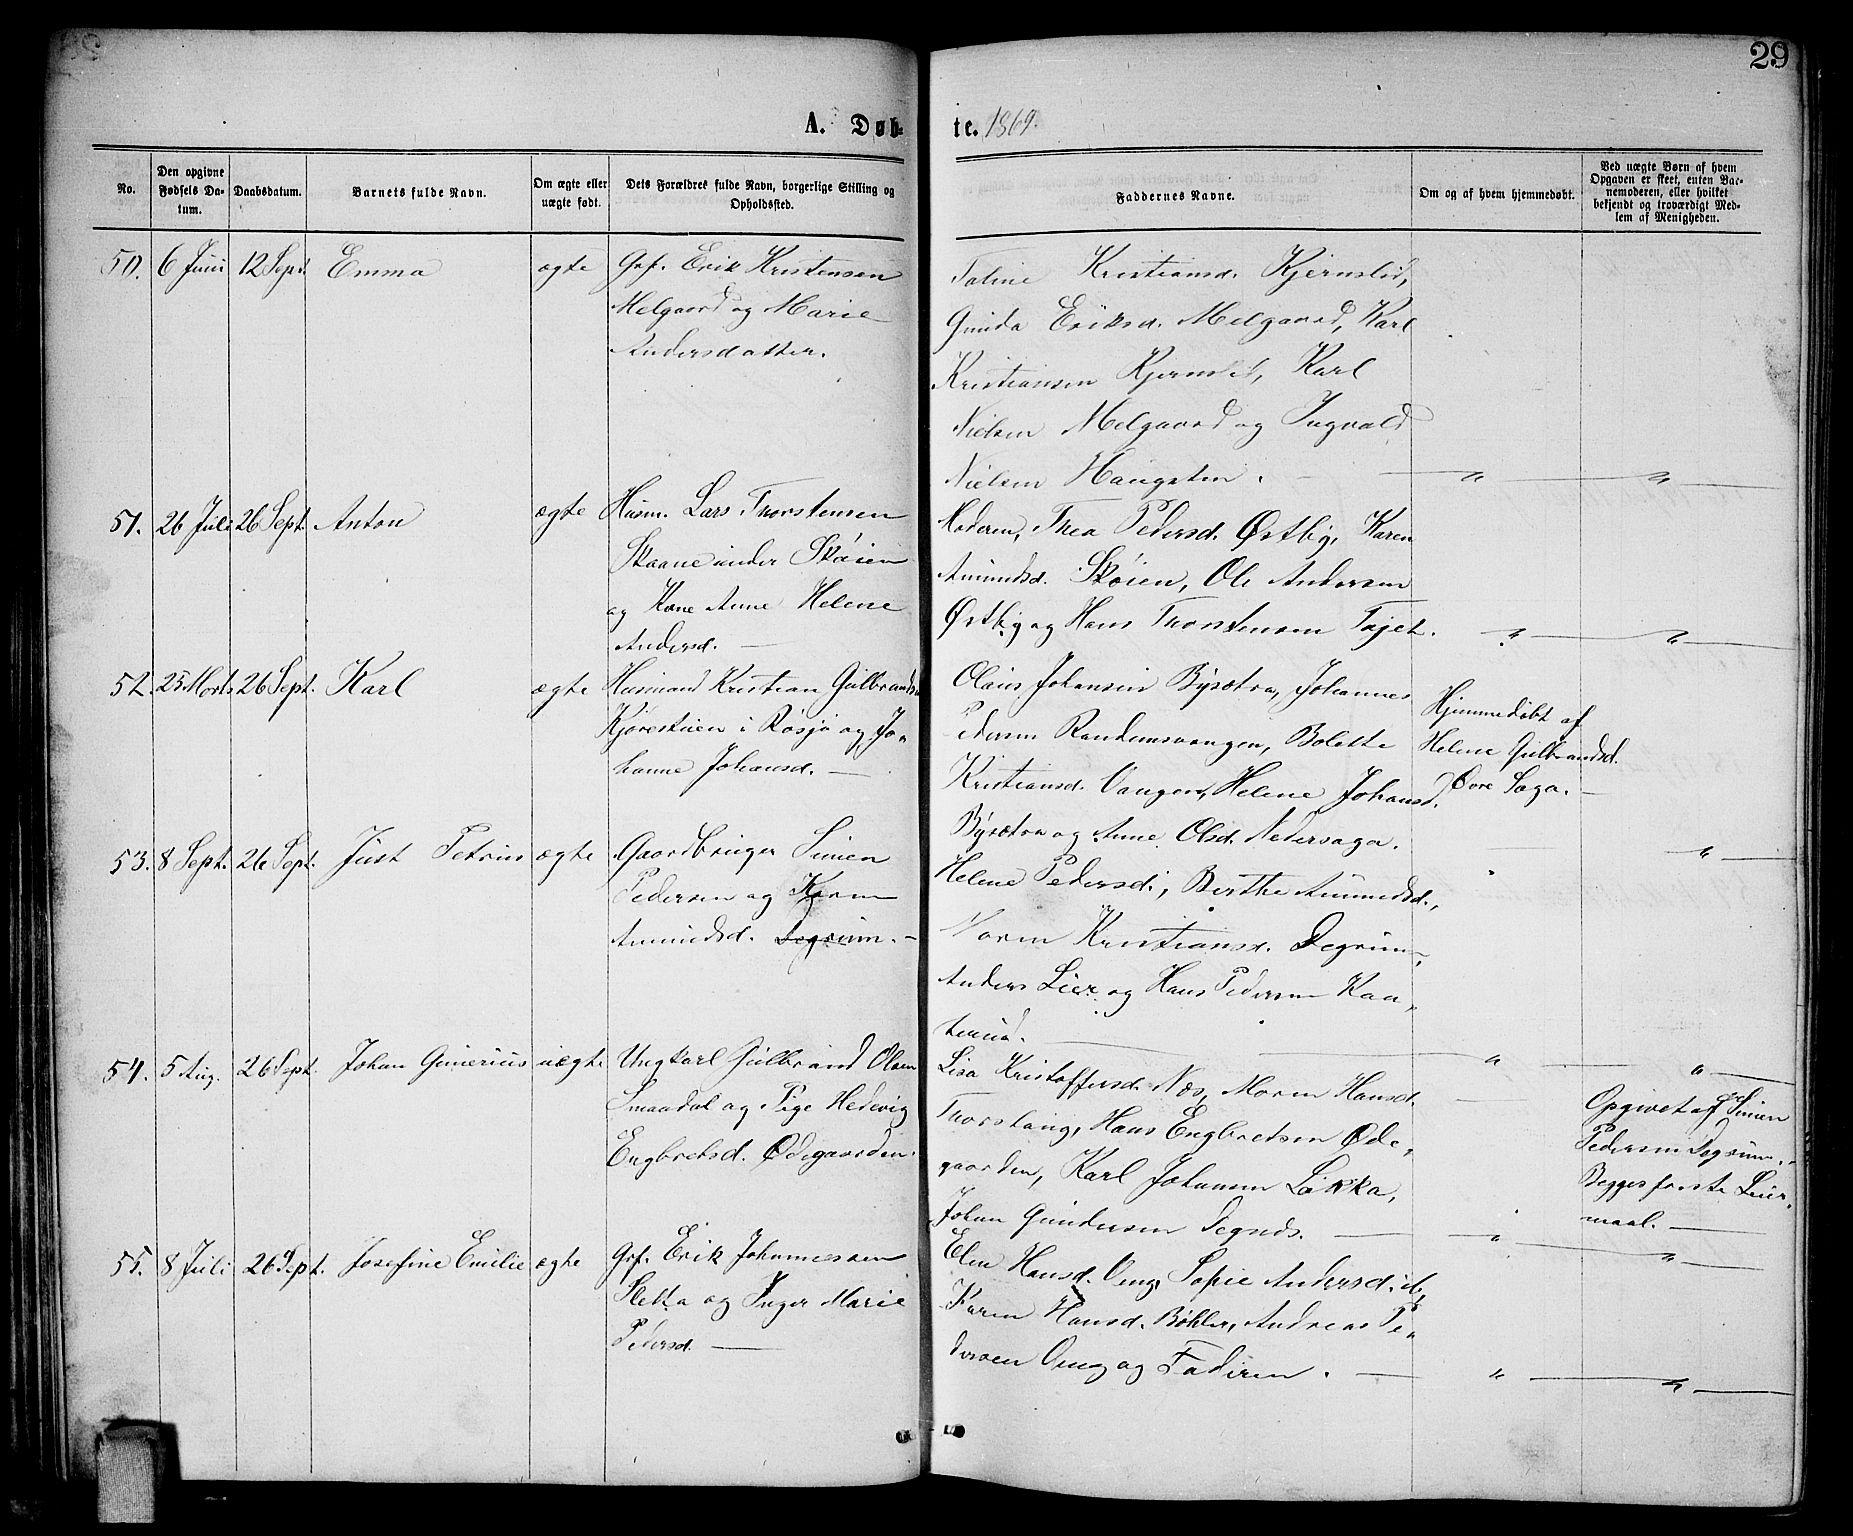 29
A. Døb-
te. 1869.
No.
Den opgivne Fødsels Da-tum.
Daabsdatum.
Barnets fulde Navn.
Om ægte eller uægte født.
Dets Forældres fulde Navn, borgerlige Stilling og Opholdssted.
Faddernes Navne.
Om og af hvem hjemmedøbt.
Ved uægte Børn af hvem Opgaven er skeet, enten Bar-nemoderen, eller hvilket bekjendt og troværdigt Med-lem af Menigheden.
50. 6 Juni 12 Sept. Emma ægte
Grf. Erik Kristensen
Melgaard og Marie
Andersdatter.
Taline Kristiansd. Kjernslid,
Gunda Eriksd. Melgaard, Karl
Kristiansen Kjernslid, Karl
Nielsen Melgaard og Ingvald
Nielsen Haugsten. — " — " —
51. 26 Juli 26 Sept. Anton ægte
Husm. Lars Thorstensen
Skaane under Skøien
og Kone Anne Helene
Andersd. —
Moderen, Thea Pedersd. Østby, Karen
Amundsd. Skøien, Ole Andersen
Østby og Hans Thorstensen Tajet. " — " —
52. 25 Marts 26 Sept. Karl ægte
Husmand Kristian Gulbrandsen
Kjørestuen i Røsjø og Jo-
hanne Johansd. —
Olaus Johansen Bysætra, Johannes
Pedersen Randemsvangen, Bolette
Kristiansd. Vangen, Helene Johansd.
Bysætra og Anne Olsd. Nedersaga.
Hjemmedøbt af
Helene Gulbrandsd.
Øvre Saga. —
" —
53. 8 Sept. 26 Sept. Just Petrus ægte
Gaardbruger Simen
Pedersen og Karen
Amundsd. Degrum. -
Helene Pedersd., Berthe Amundsd.,
Maren Kristiansd. Degrum,
Anders Lier og Hans Pedersen Kaa-
terud. — " — " —
54. 5 Aug. 26 Sept. Johan Gunerius uægte
Ungkarl Gulbrand Olsen
Smaadal og Pige Hedevig
Engbretsd. Ødegaarden.
Lisa Kristoffersd. Næs, Maren Hansd.
Thorshaug, Hans Engbretsen Øde-
gaarden, Karl Johansen Løkka,
Johan Gundersen Degnds. — " —
Opgivet af Simen
Pedersen Degrum. -
Begges første Leier-
maal. —
55. 8 Juli 26 Sept. Josefine Emilie ægte
Grf. Erik Johannesen
Sletta og Inger Marie
Pedersd. —
Elen Hansd. Ong, Sofie Andersd. ib,
Karen Hansd. Bøhler, Andreas Pe-
dersen Ong og Faderen. — " — " —